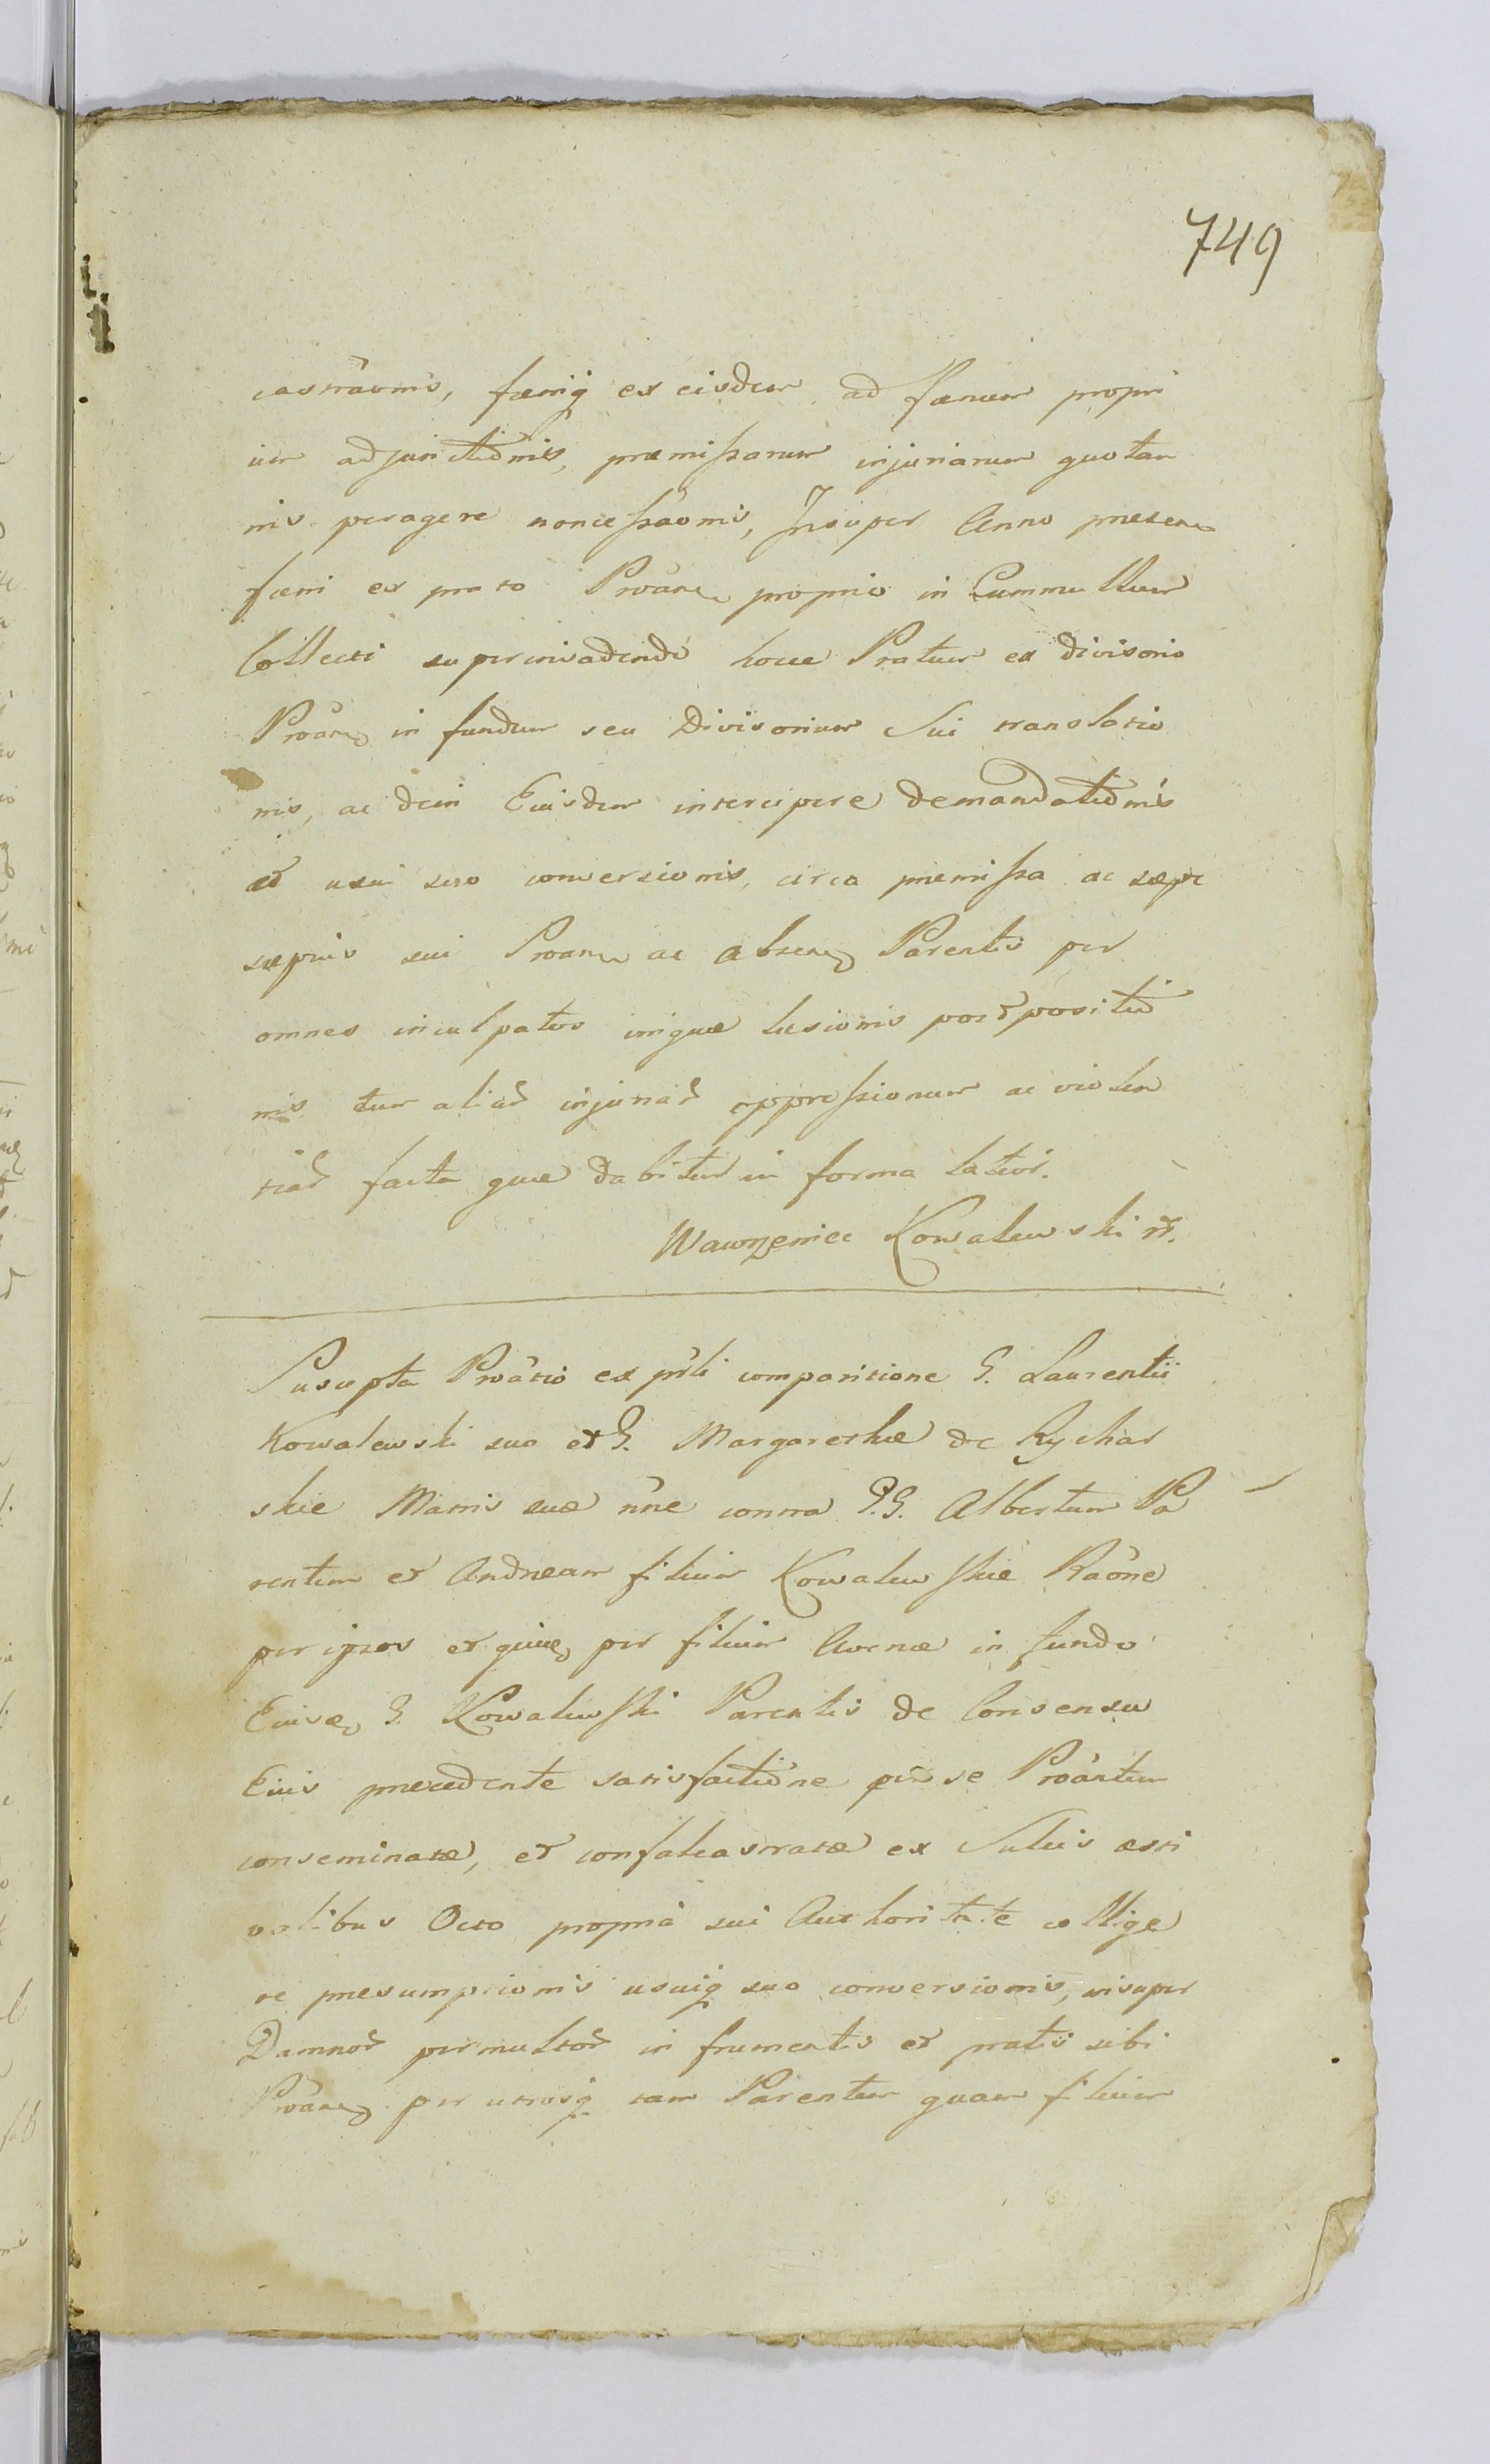 749
castrãonis, fæniq̃ ex eisdem ad fænum propri
um adjunctiõnis, præmissarum injuriarum quotan
nis peragere noncessãonis, Insuper Anno præsenẽ
fæni ex prato Proãnẽ proprio in Cummullum
Collecti superinvadendo hocce Pratum ex divisorio
Proãnẽ in fundum seu Divisorium Sui translatio
nis, ac dein Eiusdem intercipere demandatiõnis
et usui suo conversionis, circa præmissa ac sæpe
sæpius sui Proanẽ ac absenẽ Parentis per
omnes inculpatos iniquæ læsionis postpositiõ
nis tum aliaȓ injuriaȓ oppressionum ac violen
tiaȓ facta quæ dabitur in forma latior.
Wawrzeniec Kowalewski
Suscepta Proãtio ex pr̃li comparitione G. Laurentii
Kowalewski suo et G. Margarethæ de Rychar
skie Marris suæ ñne contra G.G. Albertum Pa
rentem et Andream filium Kowalewskie Raõne
per ipsos et quiueȩ per filium Avenæ in fundo
Eiusȩ G. Kowalewski Parentis de Consensu
Eius præcedente satisfactiõne per se Proãntem
conseminatæ, et confalcastratæ ex Sulcis æsti
valibus Octo propriâ sui Authoritate collige
re præsumptionis usuiq̃ suo conversionis, insuper
Damnoȓ permultoȓ in frumentis et pratis sibi
Proãnẽ per utrosq̃ tam Parentem quam filium